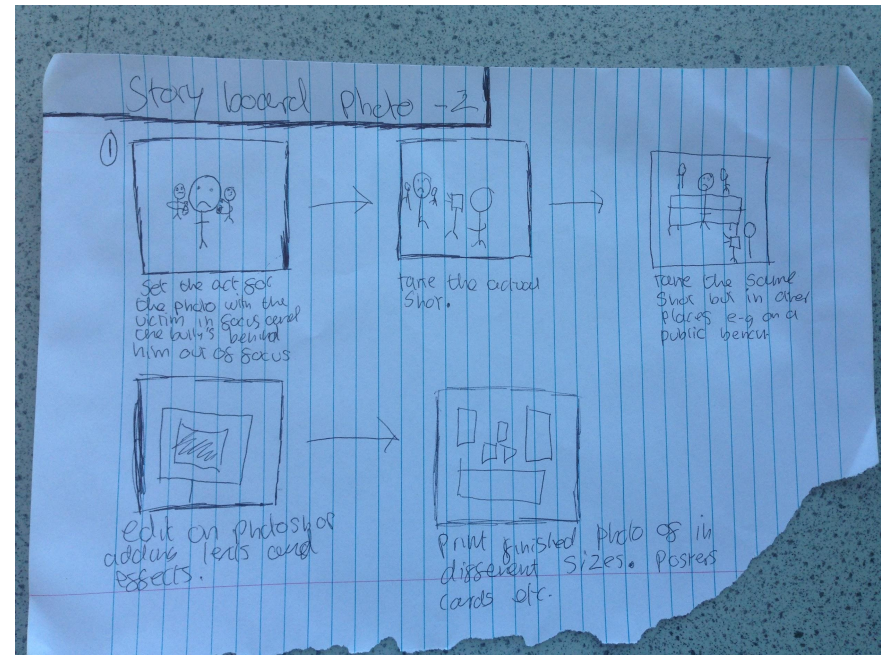 Story board Photo - 2
1
Set the act for
the photo with the
victim in focus and
the bully's behind
him out of focus
take the actual
shot.
take the same
shot but in other
places e-g on a
public bench
edit on photoshop
adding lens and
effects.
Print finished photo of in
different sizes. Posters
cards etc.